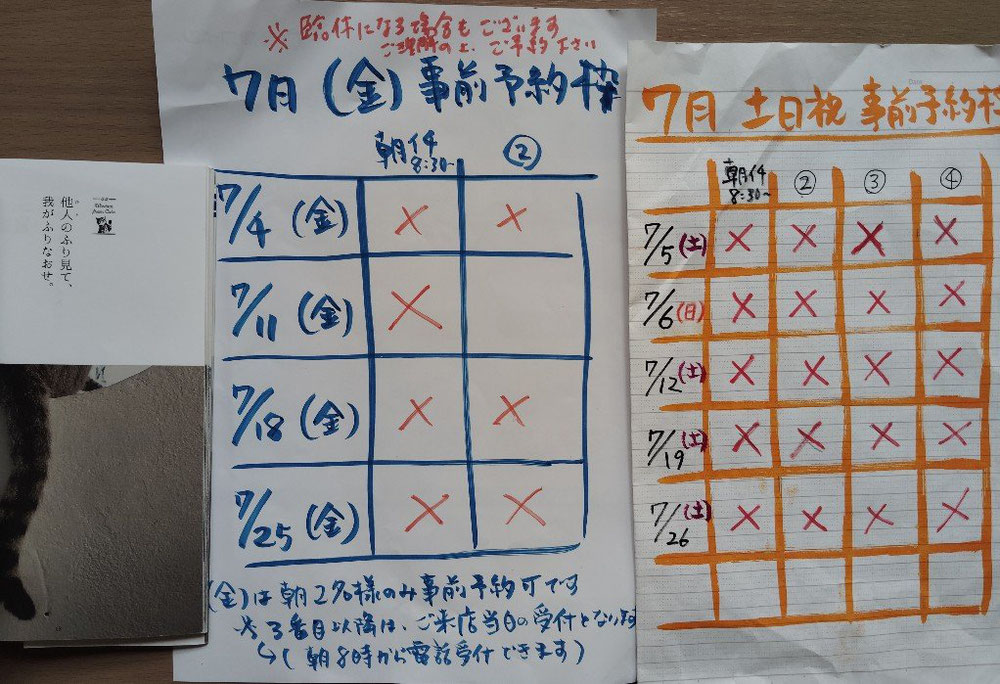 他人のふり見て、
我がふりなおせ。
※ 臨休になる場合もございます
ご理解の上、ご予約下さい
7月(金)事前予約枠
朝イチ ②
8:30~
7/4(金) × ×
7/11(金) ×
7/18(金) × ×
7/25(金) × ×
(金)は朝2名様のみ事前予約可です
※3番目以降は、ご来店当日の受付となります
↳(朝8時から電話受付できます)
7月 土日祝 事前予約枠
朝イチ ② ③ ④
8:30~
7/5(土) × × × ×
7/6(日) × × × ×
7/12(土) × × × ×
7/19(土) × × × ×
7/26(土) × × × ×